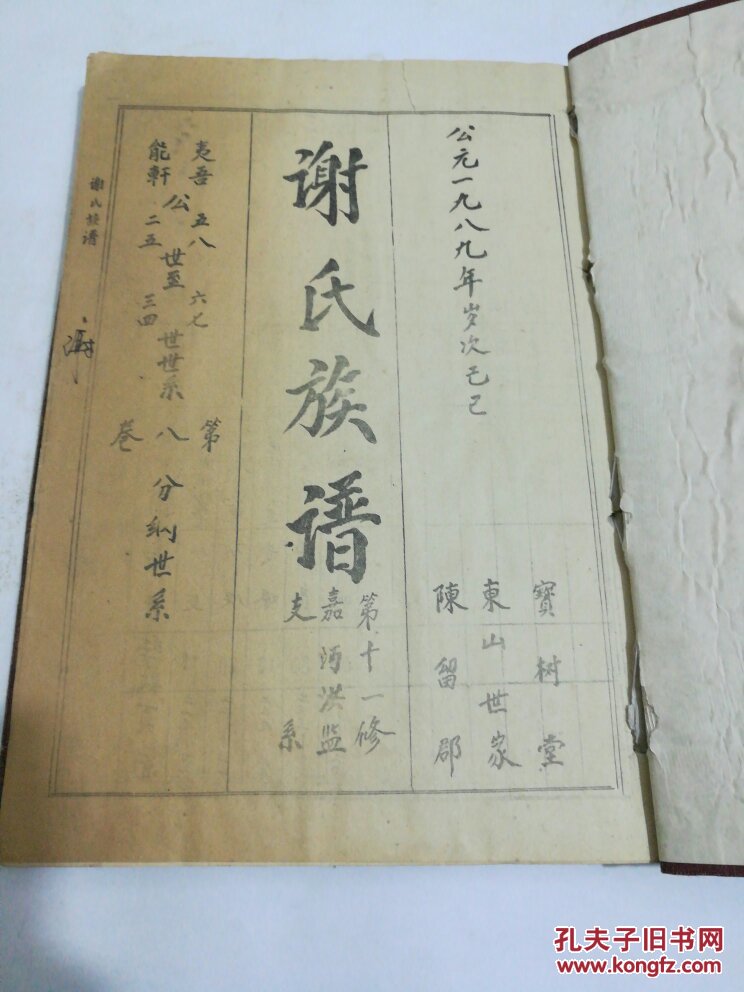 公元一九八九年岁次己巳
寳树堂
東山世家
陳留郡
谢氏族谱
第十一修
嘉沔洪监
支系
夷吾 五八 六七
公 世至 世世系
能軒 二五 三四
第八卷
分纲世系
谢氏族谱
孔夫子旧书网
www.kongfz.com